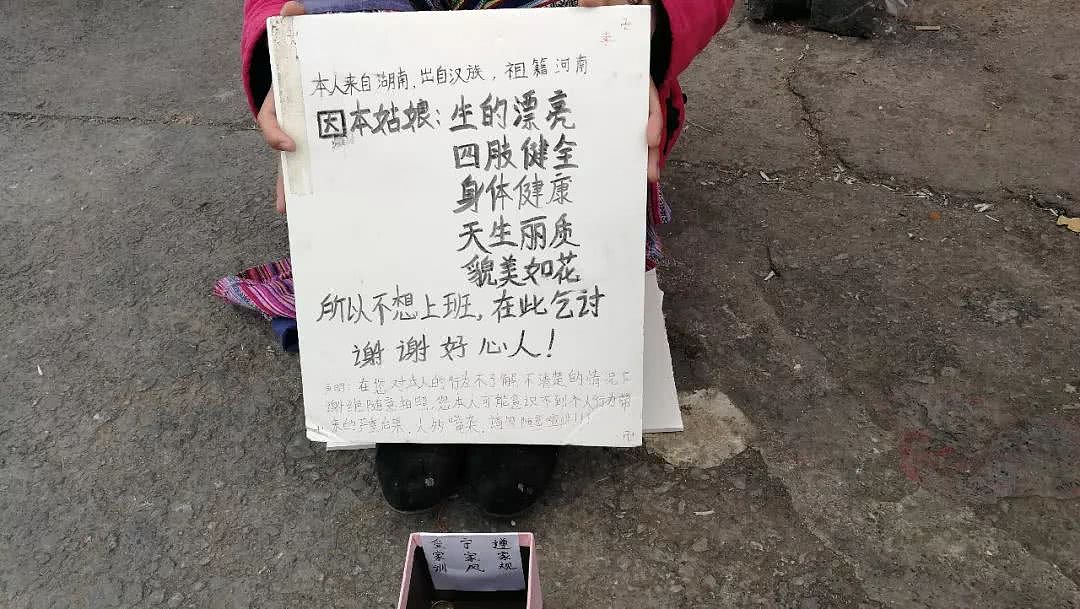 本人来自湖南,出自汉族,祖籍河南
因本姑娘:生的漂亮
四肢健全
身体健康
天生丽质
貌美如花
所以不想上班,在此乞讨
谢谢好心人!
在您对本人的行为不了解不清楚的情况下
谢绝随意拍照,您本人可能意识不到个人行为带
来的严重后果,人
遵家规
守家风
家训